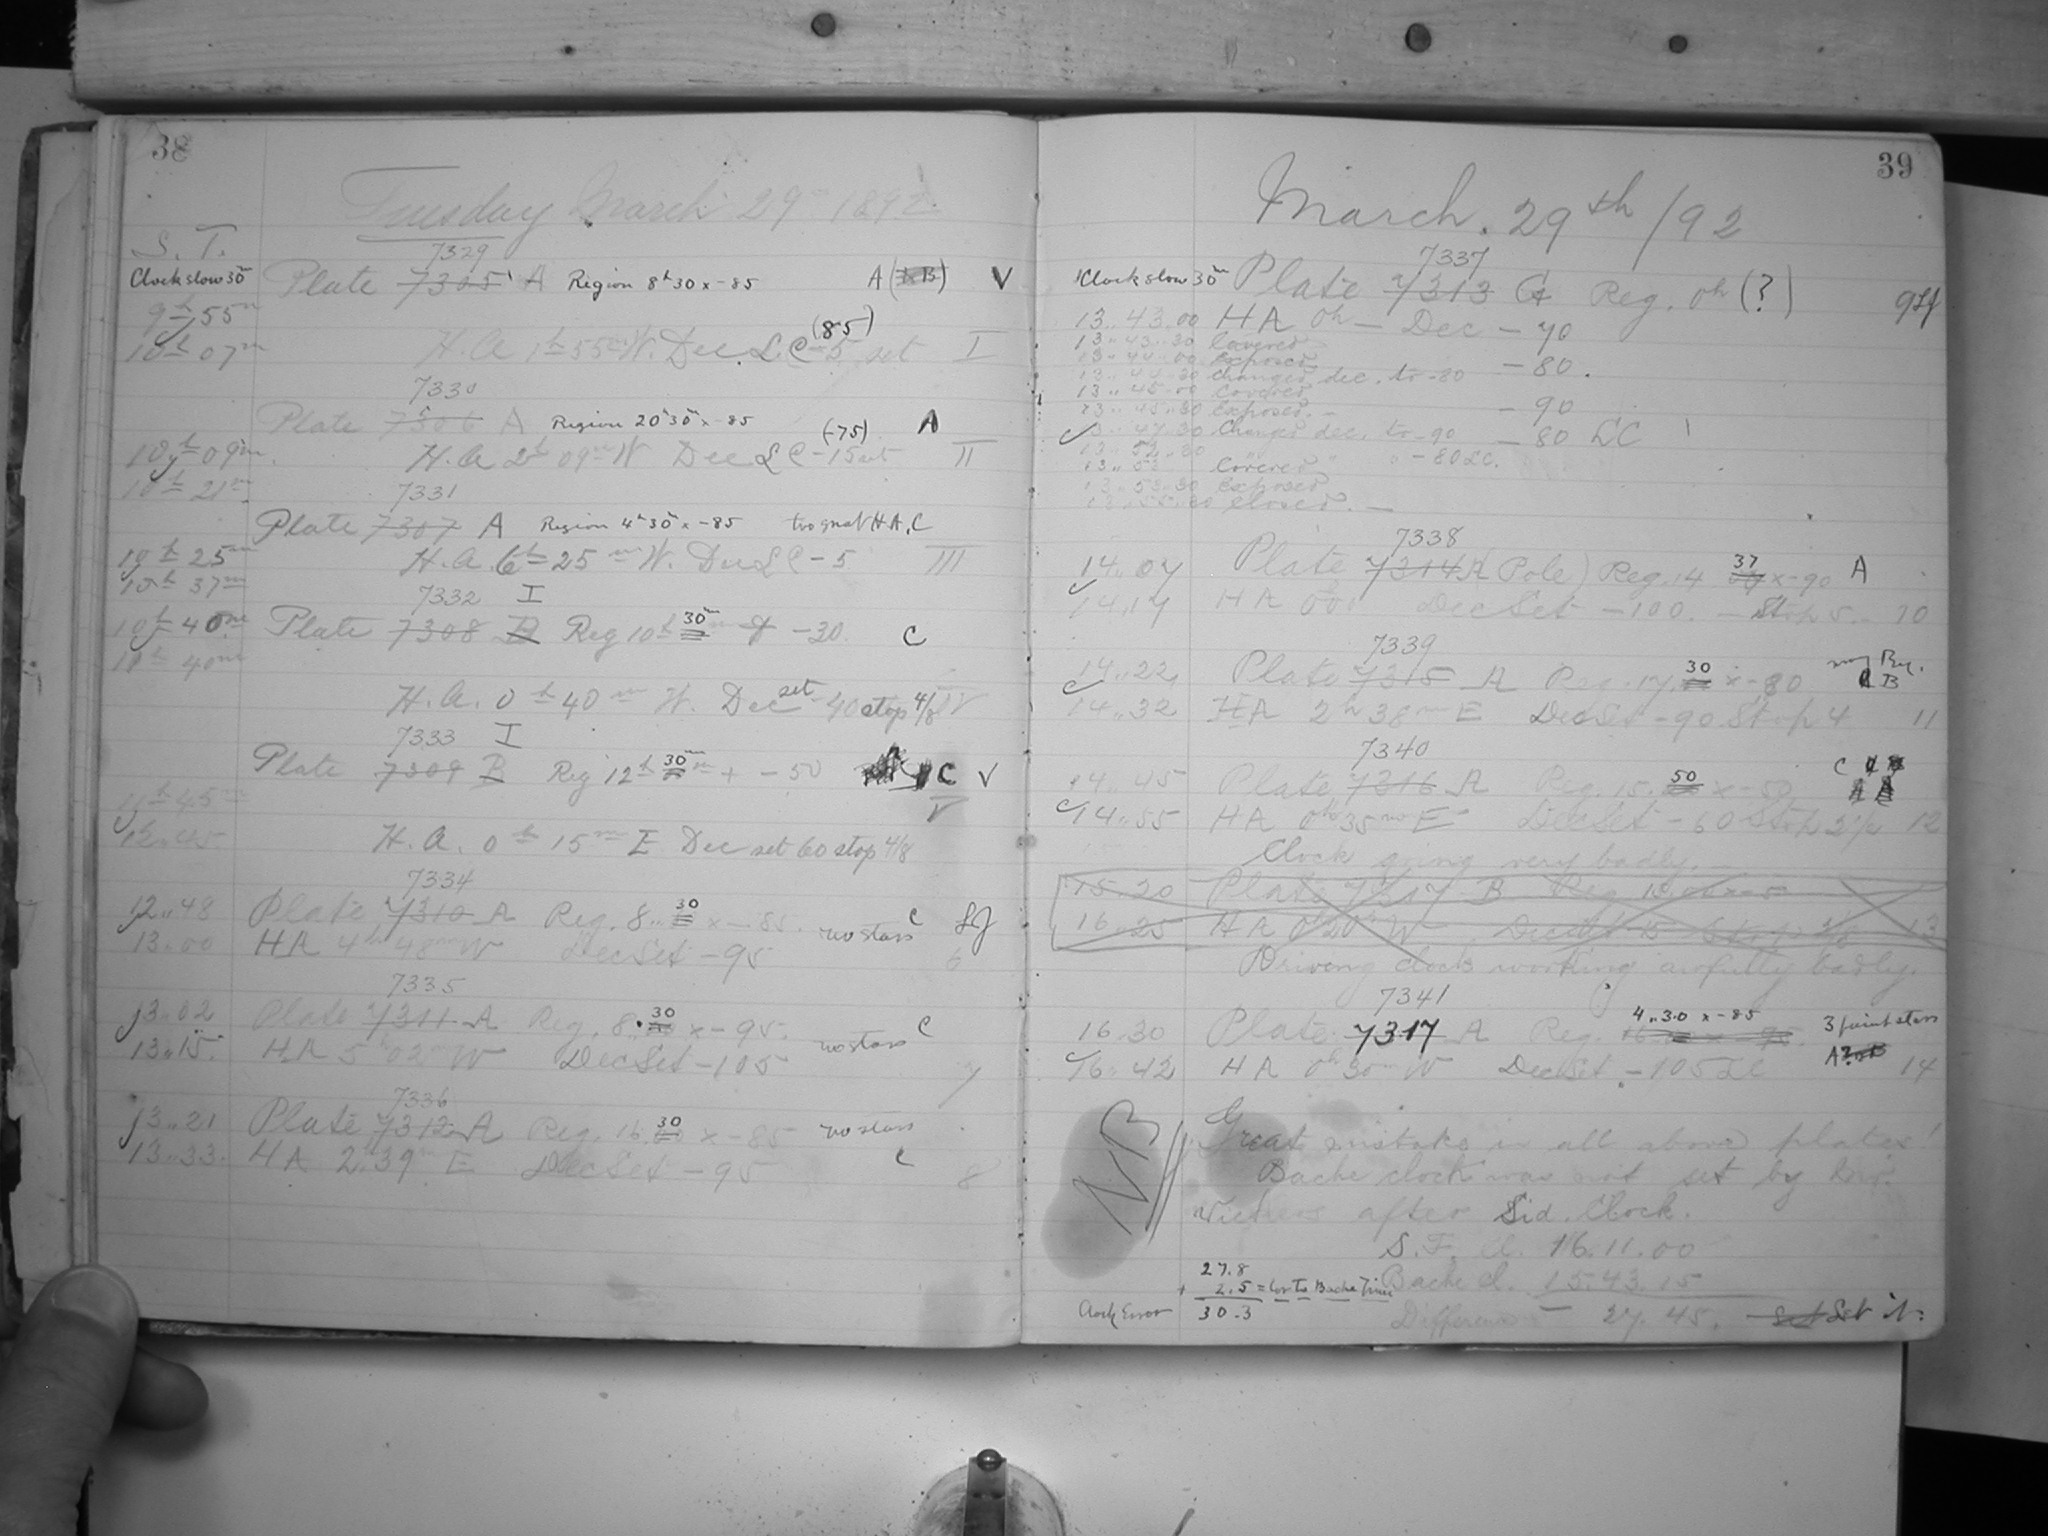 38
Tuesday March 29th 1892
S. T.
7329
Clock slow 30m Plate 7305 A Region 8h30 x -85 A V
9h 55m
(85)
10h 07m H.A 1h 55m W. Dec L C -5 set I
7330
Plate 7306 A Region 20h30m x -85 A
(-75)
10h 09m H.A 2h 09m W Dec L C -15 set II
10h 21m
7331
Plate 7307 A Region 4h30m x -85 too great H A, C
10h 25m H.A. 6h 25m W. Dec L C -5 III
10h 37m
7332 I
10h 40m Plate 7308 B Reg 10h 30m -30 C
11h 40m
H.A. 0h 40m W. Dec set -40 stop 4/8 IV
7333 I
Plate 7309 B Reg 12h 30m + -50 C V
11h 45m V
12h 45 H.A. 0h 15m E Dec set 60 stop 4/8
7334
12..48 Plate 7310 A Reg. 8.. 30 x -85. no stars C
13.00 HA 4h 48m W Dec Set -95 6
7335
13..02 Plate 7311 A Reg. 8.. 30 x -95. no stars C
13..15 HA 5h 02m W Dec Set -105 7
7336
13..21 Plate 7312 A Reg. 16 30 x -85 no stars
13..33. HA 2h 39m E Dec Set -95 C 8
39
March. 29th /92
7337
Clock slow 30m Plate 7313 G Reg. 0h (?)
13..43.00 HA 0h — Dec -70
13..43..30 Covered
13..44..00 Exposed -80.
13..44..30 Changed dec. to -80
13..45..00 Covered
13..45..30 Exposed. -90
13..47.30 Changed dec. to -90 -80 LC
13..52..30 " " " -80 LC.
13..53 Covered
13..53..30 Exposed
13..55..30 Closed. —
7338
14..07 Plate 7314 A (Pole) Reg. 14 37 x -90 A
14.17 HA 0h0 Dec Set -100. — Stop 5.. 10
7339
14..22, Plate 7315 A Reg. 17. 30 x -80 B
14..32 HA 2h 38m E Dec Set -90 Stop 4 11
7340
14..45 Plate 7316 A Reg. 15. 50 x -50 C
14..55 HA 0h 35m E Dec Set -60 Stop 12
Clock going very badly.
15.20 Plate 7317 B Reg
16.25 HA 0h 20m W Dec Set 13
Driving clock working awfully badly.
7341
16.30 Plate 7317 A Reg. 4..30 x -85 3 faint stars
16.42 HA 0h 30m W Dec Set -105 LC A 14
NB Great mistake in all above plates!
Bache clock was not set by Mr.
after Sid. Clock.
S. T. Cl. 16.11.00
27.8 Bache Cl. 15.43.15
+ 2.5 = Cor to Bache Time
Clock Error 30.3 Difference — 27.45. Set it.